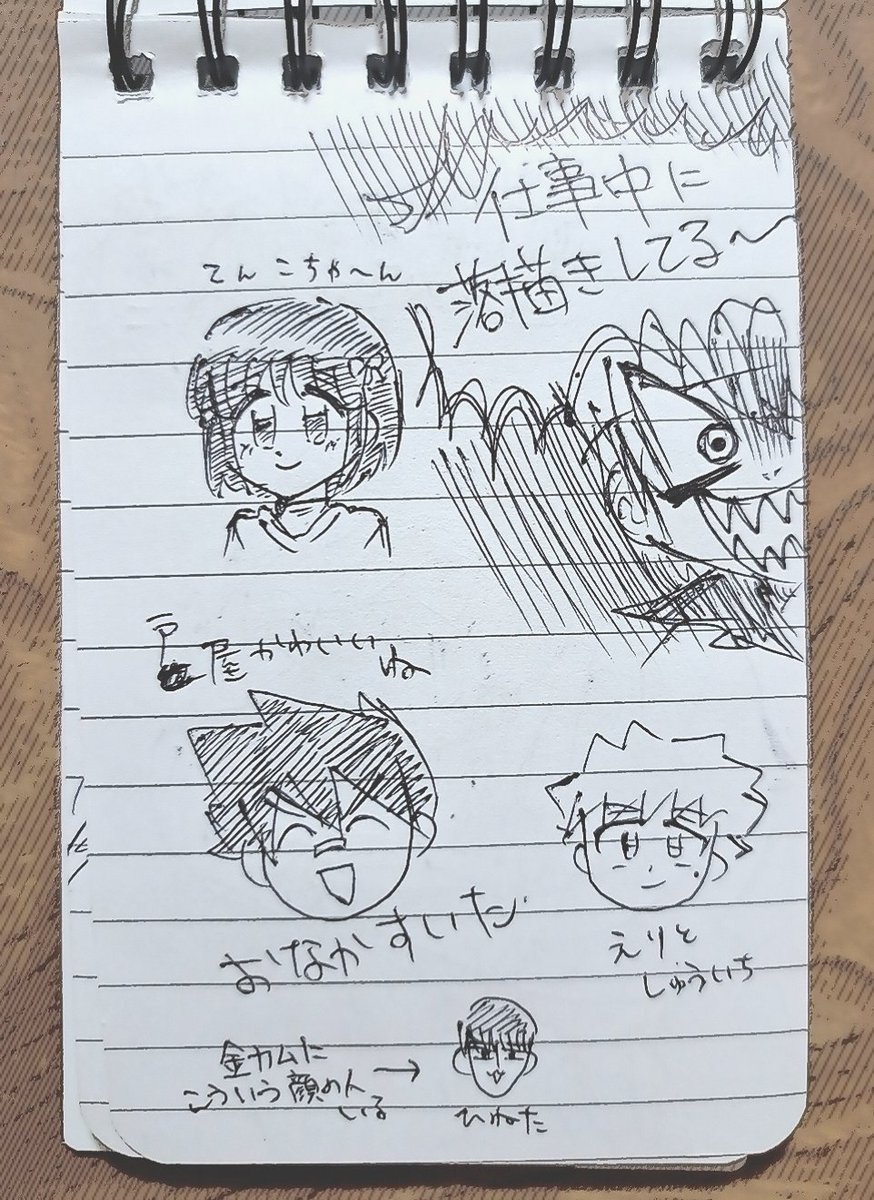 仕事中に
落描きしてる〜
てんこちゃ〜ん
屋かわいい
ね
おなかすいた
えりと
しゅういち
金カムに
こういう顔めん
いる
→
ひねた